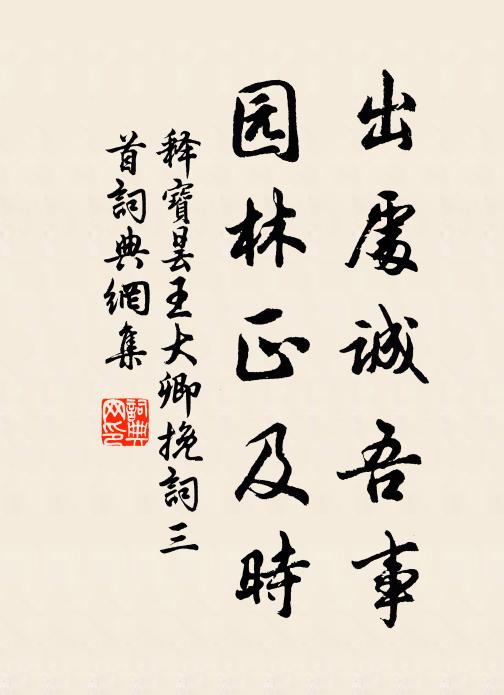 出處誠吾事
园林正及時
释寶昙王大卿挽詞三
首詞典網集
詞典
网印